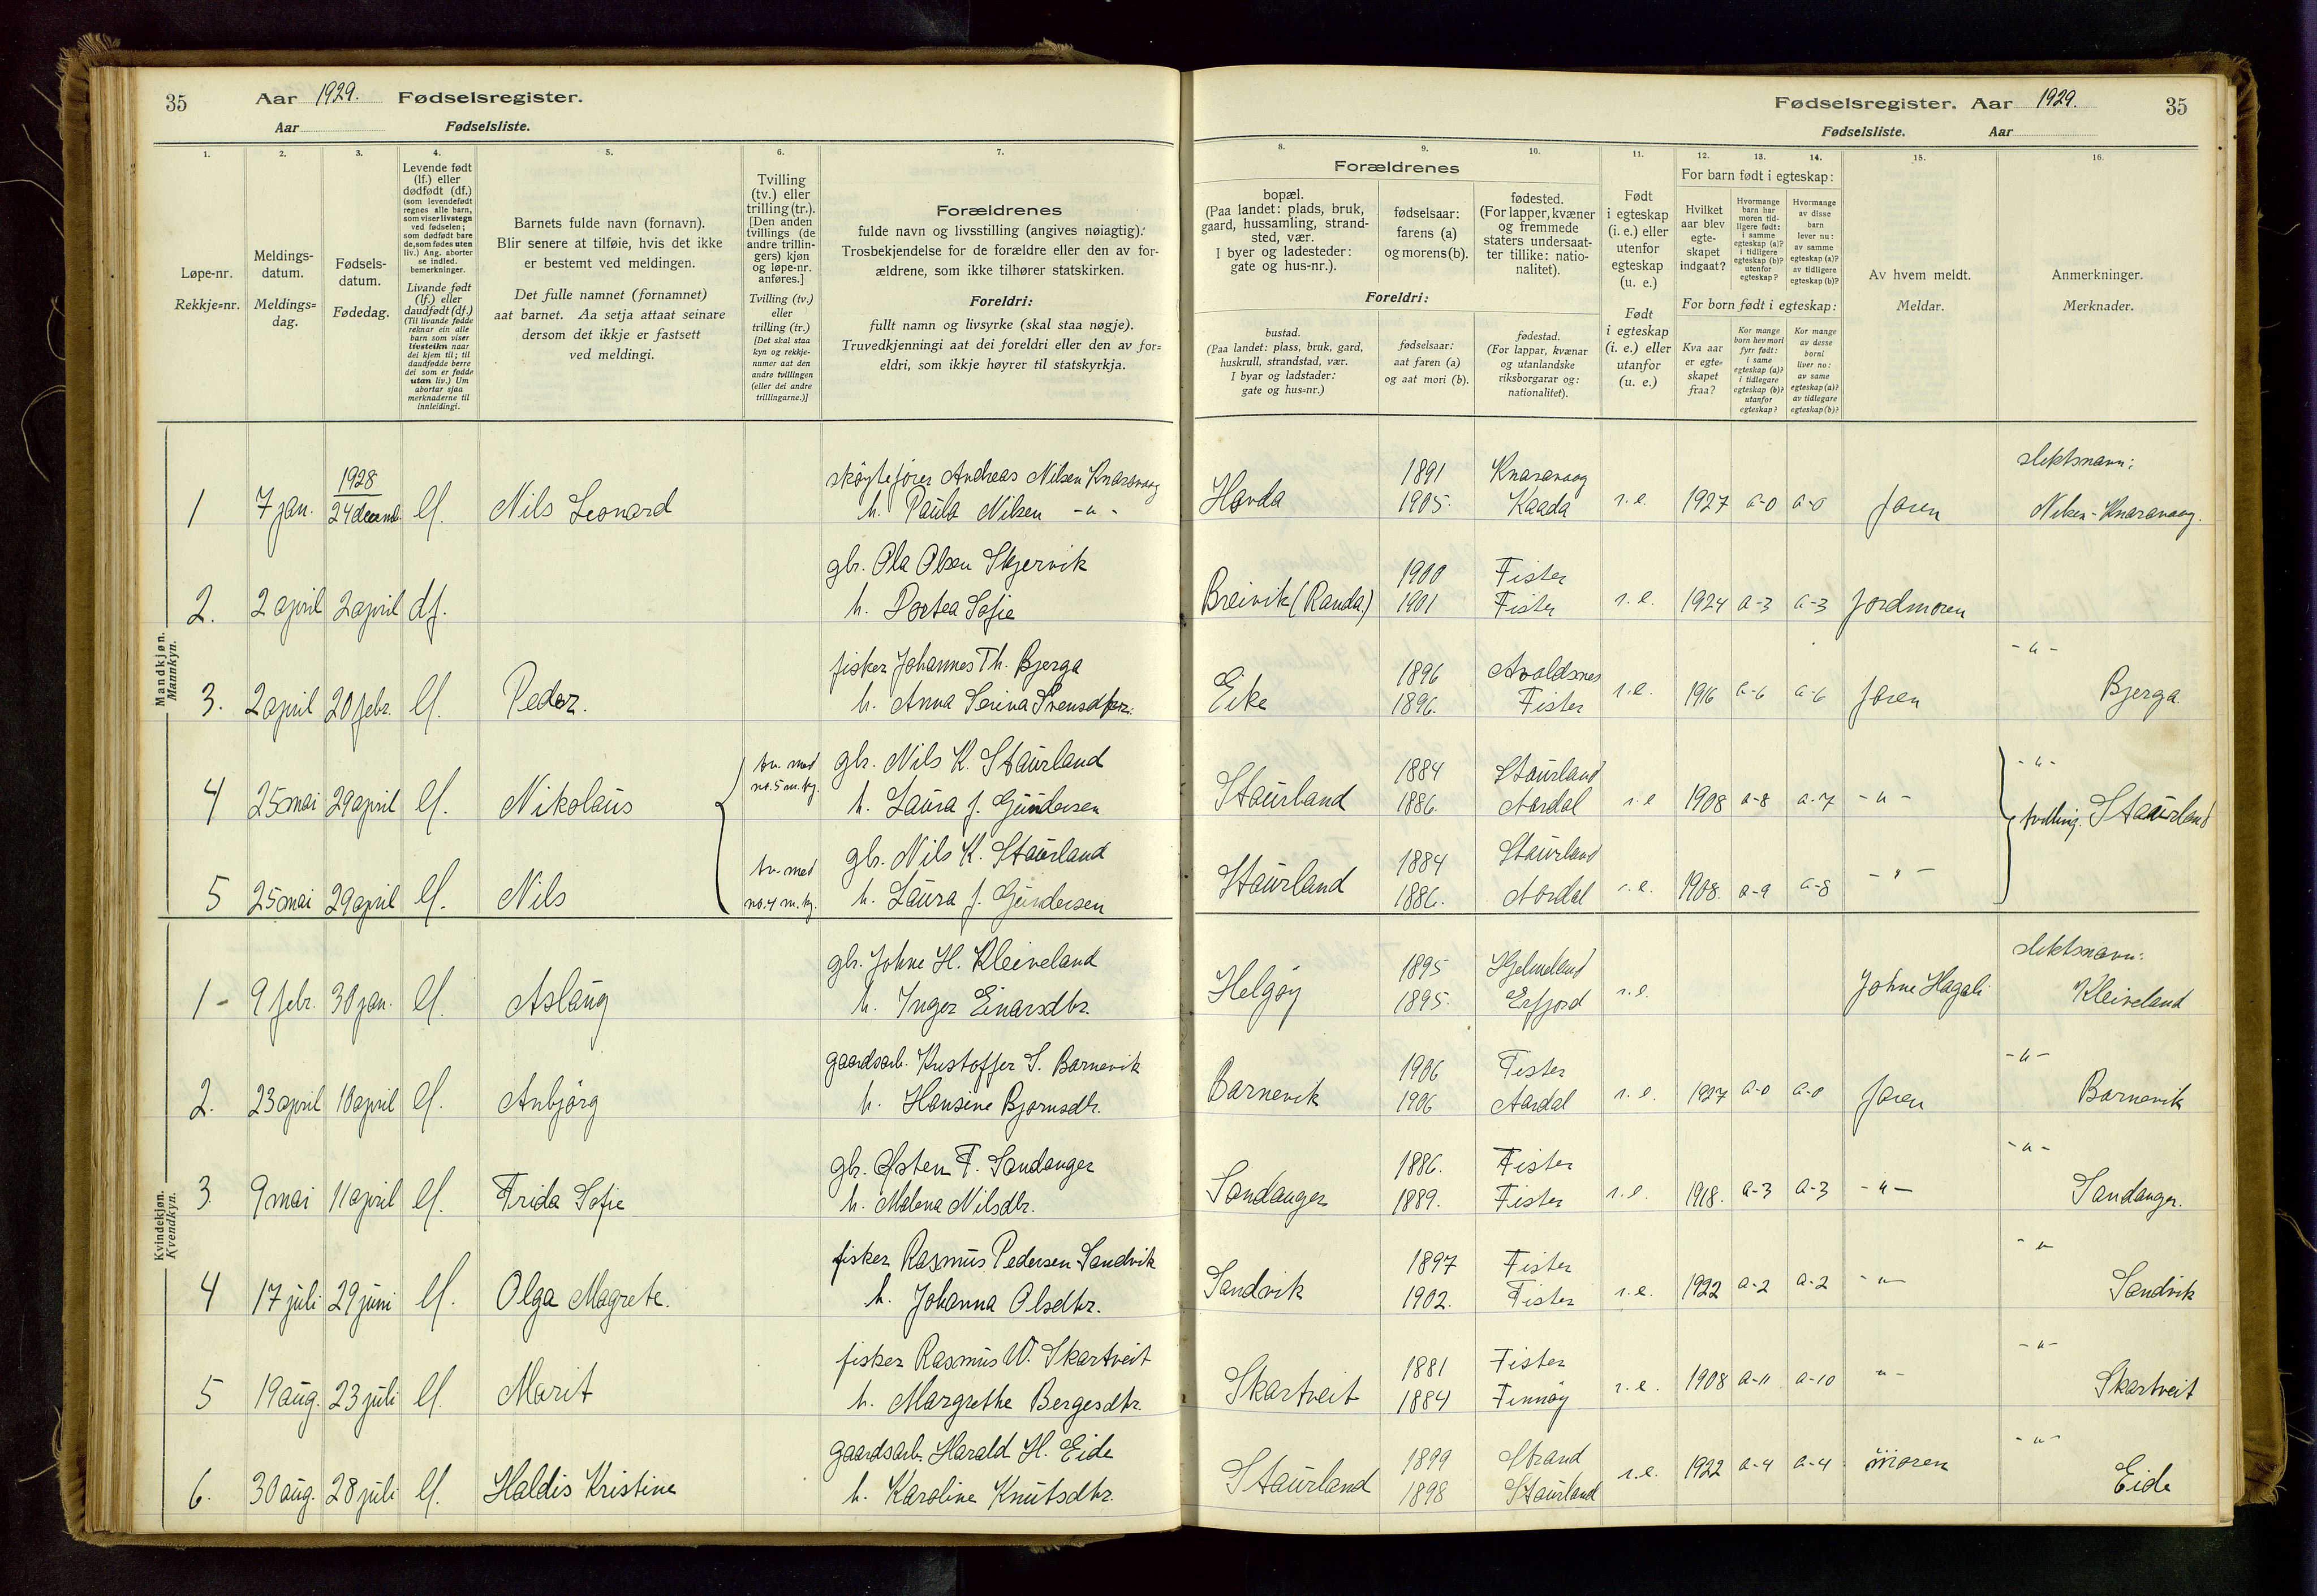 35 Aar 1929. Fødselsregister.
Aar Fødselsliste.
1. 2. 3. 4. 5. 6. 7.
Løpe-nr.
Rekkje=nr.
Meldings-
datum.
Meldings=
dag.
Fødsels-
datum.
Fødedag.
Levende født
(lf.) eller
dødfødt (df.)
(som levendefødt
regnes alle barn,
som viser livstegn
ved fødselen;
som dødfødt bare
de, som fødes uten
liv.) Ang. aborter
se indled.
bemerkninger.
Livande født
(lf.) eller
daudfødt (df.)
(Til livande fødde
reknar ein alle
barn som viser
livsteikn naar
dei kjem til; til
daudfødde berre
dei som er fødde
utan liv.) Um
abortar sjaa
merknaderne til
innleidingi.
Barnets fulde navn (fornavn).
Blir senere at tilføie, hvis det ikke
er bestemt ved meldingen.
Det fulle namnet (fornamnet)
aat barnet. Aa setja attaat seinare
dersom det ikkje er fastsett
ved meldingi.
Tvilling
(tv.) eller
trilling (tr.).
[Den anden
tvillings (de
andre trillin-
gers) kjøn
og løpe-nr.
anføres.]
Tvilling (tv.)
eller
trilling (tr.)
[Det skal staa
kyn og rekkje-
numer aat den
andre tvillingen
(eller dei andre
trillingarne.)]
Forældrenes
fulde navn og livsstilling (angives nøiagtig).
Trosbekjendelse for de forældre eller den av for-
ældrene, som ikke tilhører statskirken.
Foreldri:
fullt namn og livsyrke (skal staa nøgje).
Truvedkjenningi aat dei foreldri eller den av for=
eldri, som ikkje høyrer til statskyrkja.
Mandkjøn.
Mannkyn.
1 7 jan. 1928 24 decemb. lf. Nils Leonard skøytefører Andreas Nilsen Knaravaag
h. Paula Nilsen -"-
2. 2 april 2 april df. gbr. Ola Olsen Skjervik
h. Dortea Sofie
3. 2 april 20 febr. lf. Peder. fisker Johannes Th. Bjerga
h. Anna Serina Svensdtr.
4 25 mai 29 april lf. Nikolaus tv. med no. 5 m. kj. gbr. Nils K. Staurland
h. Laura J. Gundersen
5 25 mai 29 april lf. Nils tv. med no. 4 m. kj. gbr. Nils K. Staurland
h. Laura J. Gundersen
Kvindekjøn.
Kvendkyn.
1 - 9 febr. 30 jan. lf. Aslaug gbr. Johne H. Kleiveland
h. Inger Einarsdtr.
2. 23 april 10 april lf. Anbjørg gaardsarb. Kristoffer S. Barnevik
h. Hansine Bjørnsdtr.
3. 9 mai 11 april lf. Frida Sofie gbr. Osten F. Sandanger
h. Malena Nilsdtr.
4 17 juli 29 juni lf. Olga Magrete. fisker Rasmus Pedersen Sandvik
h. Johanna Olsdtr.
5 19 aug. 23 juli lf. Marit fisker Rasmus W. Skartveit
h. Margrethe Bergesdtr.
6. 30 aug. 28 juli lf. Haldis Kristine gaardsarb. Harald H. Eide
h. Karoline Knutsdtr.
Fødselsregister. Aar 1929. 35
Fødselsliste. Aar
8. 9. 10. 11. 12. 13. 14. 15. 16.
Forældrenes
bopæl.
(Paa landet: plads, bruk,
gaard, hussamling, strand-
sted, vær.
I byer og ladesteder:
gate og hus-nr.).
fødselsaar:
farens (a)
og morens (b).
fødested.
(For lapper, kvæner
og fremmede
staters undersaat-
ter tillike: natio-
nalitet).
Foreldri:
bustad.
(Paa landet: plass, bruk, gard,
huskrull, strandstad, vær.
I byar og ladstader:
gate og hus=nr.)
fødselsaar:
aat faren (a)
og aat mori (b).
fødestad.
(For lappar, kvænar
og utanlandske
riksborgarar og:
nationalitet).
Født
i egteskap
(i. e.) eller
utenfor
egteskap
(u. e.)
Født
i egteskap
(i. e.) eller
utanfor
(u. e.)
For barn født i egteskap:
Hvilket
aar blev
egte-
skapet
indgaat?
Hvormange
barn har
moren tid-
ligere født:
i samme
egteskap (a)?
i tidligere
egteskap (b)?
utenfor
egteskap?
Hvormange
av disse
barn
lever nu:
av samme
egteskap (a)?
av tidligere
egteskap (b)?
For born født i egteskap:
Kva aar
er egte-
skapet
fraa?
Kor mange
born hev mori
fyrr født:
i same
egteskap (a)?
i tidlegare
egteskap (b)?
utanfor
egteskap?
Kor mange
av desse
borni
liver no:
av same
egteskap (a)?
av tidlegare
egteskap (b)?
Av hvem meldt.
Meldar.
Anmerkninger.
Merknader.
Havda 1891 1905. Knaravaag Kaada i. e. 1927 a-0 a-0 faren slektsnavn: Nilsen-Knaravaag.
Breivik (Randa) 1900 1901 Fister Fister i. e. 1924 a-3 a-3 jordmoren
Eike 1896 1896. Avaldsnes Fister i. e. 1916 a-6 a-6 faren -"- Bjerga.
Staurland 1884 1886. Staurland Aardal i. e 1908 a-8 a-7 -"- -"- tvilling. Staurland
Staurland 1884 1886. Staurland Aardal i. e. 1908. a-9 a-8 -"-
Helgøy 1895 1895. Hjelmeland Erfjord i. e. Johne Hagali slektsnavn: Kleiveland
Barnevik 1906 1906 Fister Aardal i. e. 1927 a-0 a-0 faren -"- Barnevik
Sandanger 1886. 1889. Fister Fister i. e. 1918. a-3 a-3 -"- -"- Sandanger.
Sandvik 1897 1902. Fister Fister i. e. 1922 a-2 a-2 -"- -"- Sandvik
Skartveit 1881 1884 Fister Finnøy i. e. 1908 a-11 a-10 -"- -"- Skartveit
Staurland 1899 1898 Strand Staurland i. e. 1922 a-4 a-4 moren -"- Eide